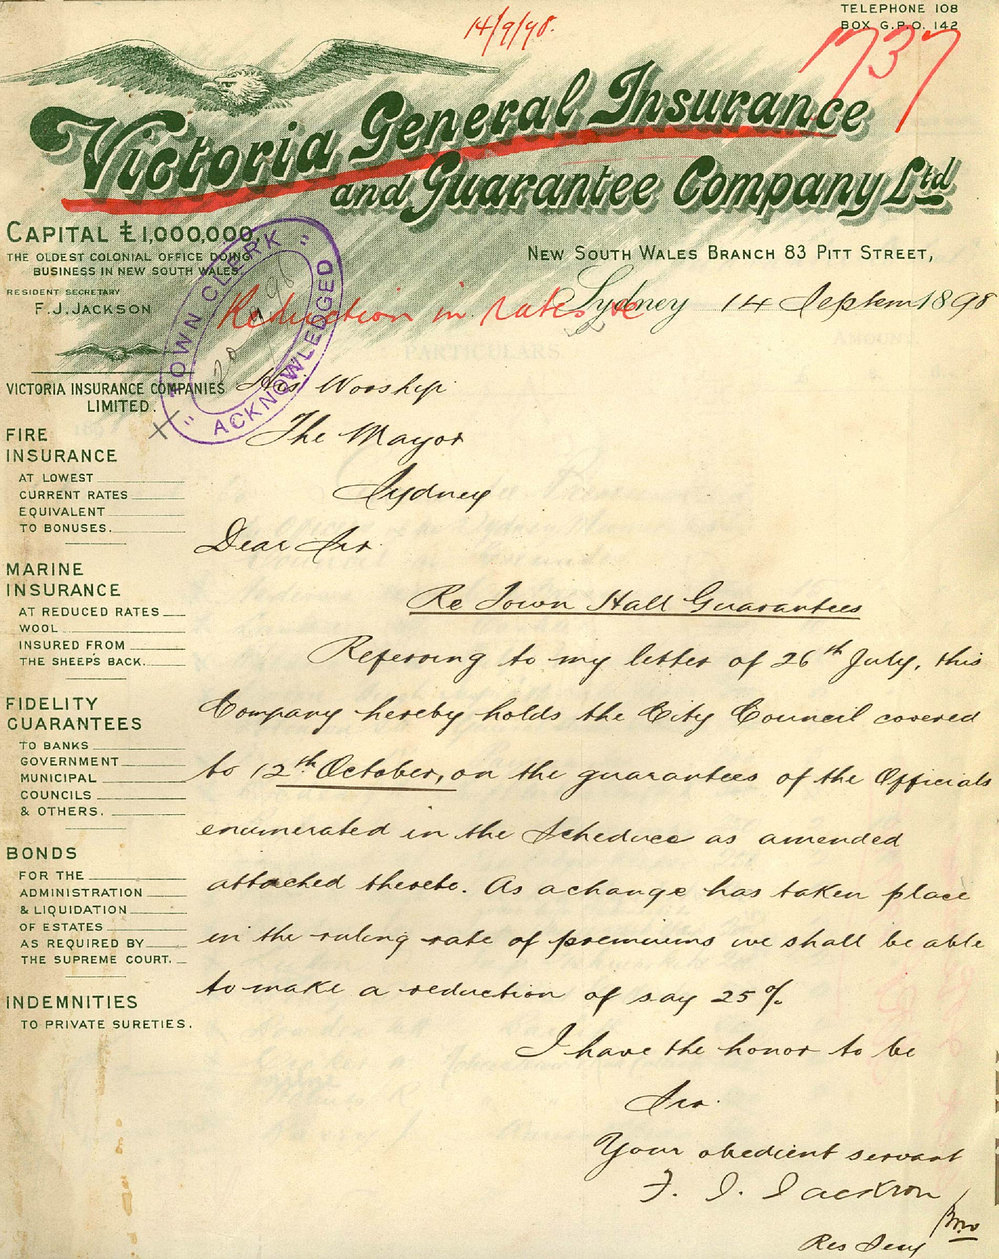 TELEPHONE 108
BOX G.P.O. 142
14/9/98.
1737
Victoria General Insurance
and Guarantee Company Ltd
CAPITAL £1,000,000
THE OLDEST COLONIAL OFFICE DOING
BUSINESS IN NEW SOUTH WALES.
RESIDENT SECRETARY
F.J. JACKSON
NEW SOUTH WALES BRANCH 83 PITT STREET,
Sydney 14 Septem 1898
Reduction in rates
"TOWN CLERK"
98
20
"ACKNOWLEDGED"
VICTORIA INSURANCE COMPANIES
LIMITED.
FIRE
INSURANCE
AT LOWEST
CURRENT RATES
EQUIVALENT
TO BONUSES.
MARINE
INSURANCE
AT REDUCED RATES
WOOL
INSURED FROM
THE SHEEP'S BACK.
FIDELITY
GUARANTEES
TO BANKS
GOVERNMENT
MUNICIPAL
COUNCILS
& OTHERS.
BONDS
FOR THE
ADMINISTRATION
& LIQUIDATION
OF ESTATES
AS REQUIRED BY
THE SUPREME COURT.
INDEMNITIES
TO PRIVATE SURETIES.
His Worship
The Mayor
Sydney
Dear Sir
Re Town Hall Guarantees
Referring to my letter of 26th July, this
Company hereby holds the City Council covered
to 12th October, on the guarantees of the Officials
enumerated in the Schedule as amended
attached thereto. As a change has taken place
in the ruling rate of premiums we shall be able
to make a reduction of say 25%
I have the honor to be
Sir.
Your obedient servant
F. J. Jackson
Res Secy
PARTICULARS
AMOUNT